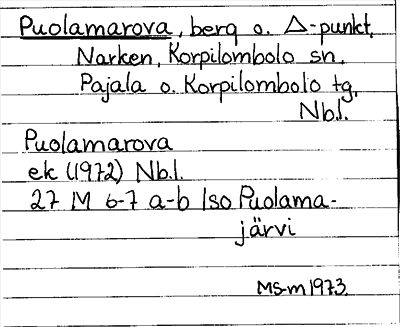 Puolamarova, berg o. Δ-punkt,
Narken, Korpilombolo sn,
Pajala o. Korpilombolo tg,
Nb.l.
Puolamarova
ek (1972) Nb.l.
27 M 6-7 a-b Iso Puolama-
järvi
MS-m 1973.